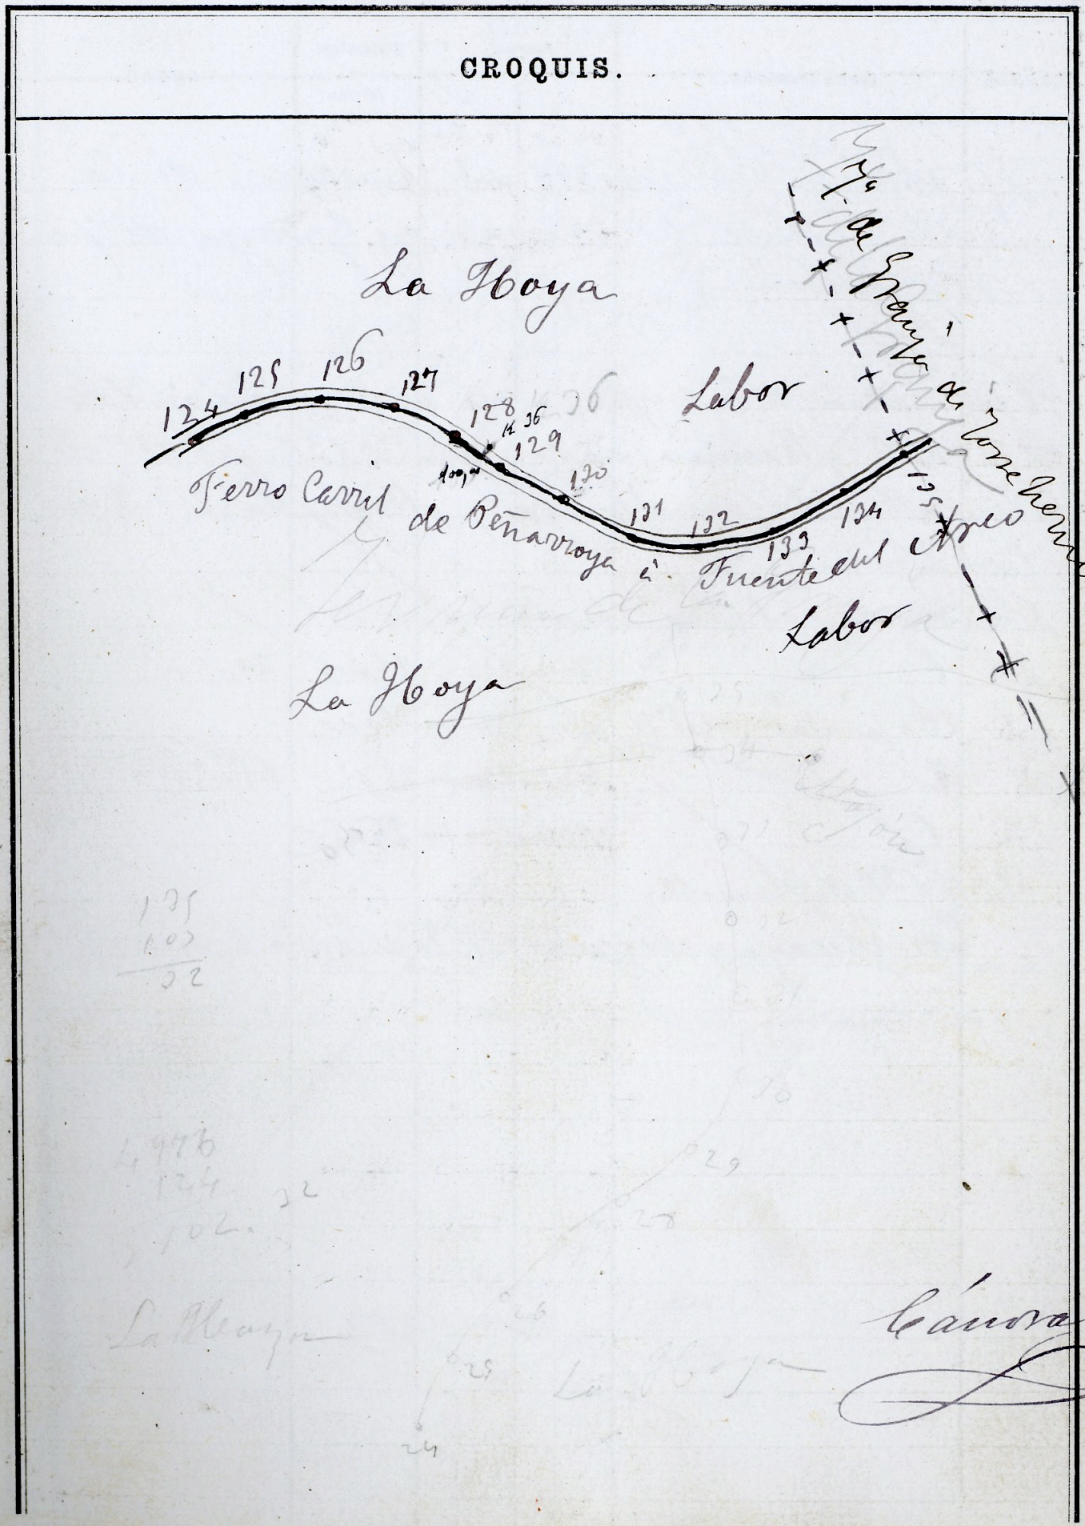 CROQUIS.
La Hoya
de Granja de Torre herm
Labor
124 125 126 127 128 K 36 129 130 131 132 133 134 135
36
Ferro Carril de Peñarroya á Fuente del Arco
Labor
La Hoya
35
34
32
135
103
32
29
28
4,976
124
102.
32
26
La Hoya
25
La Hoya
24
Cánova